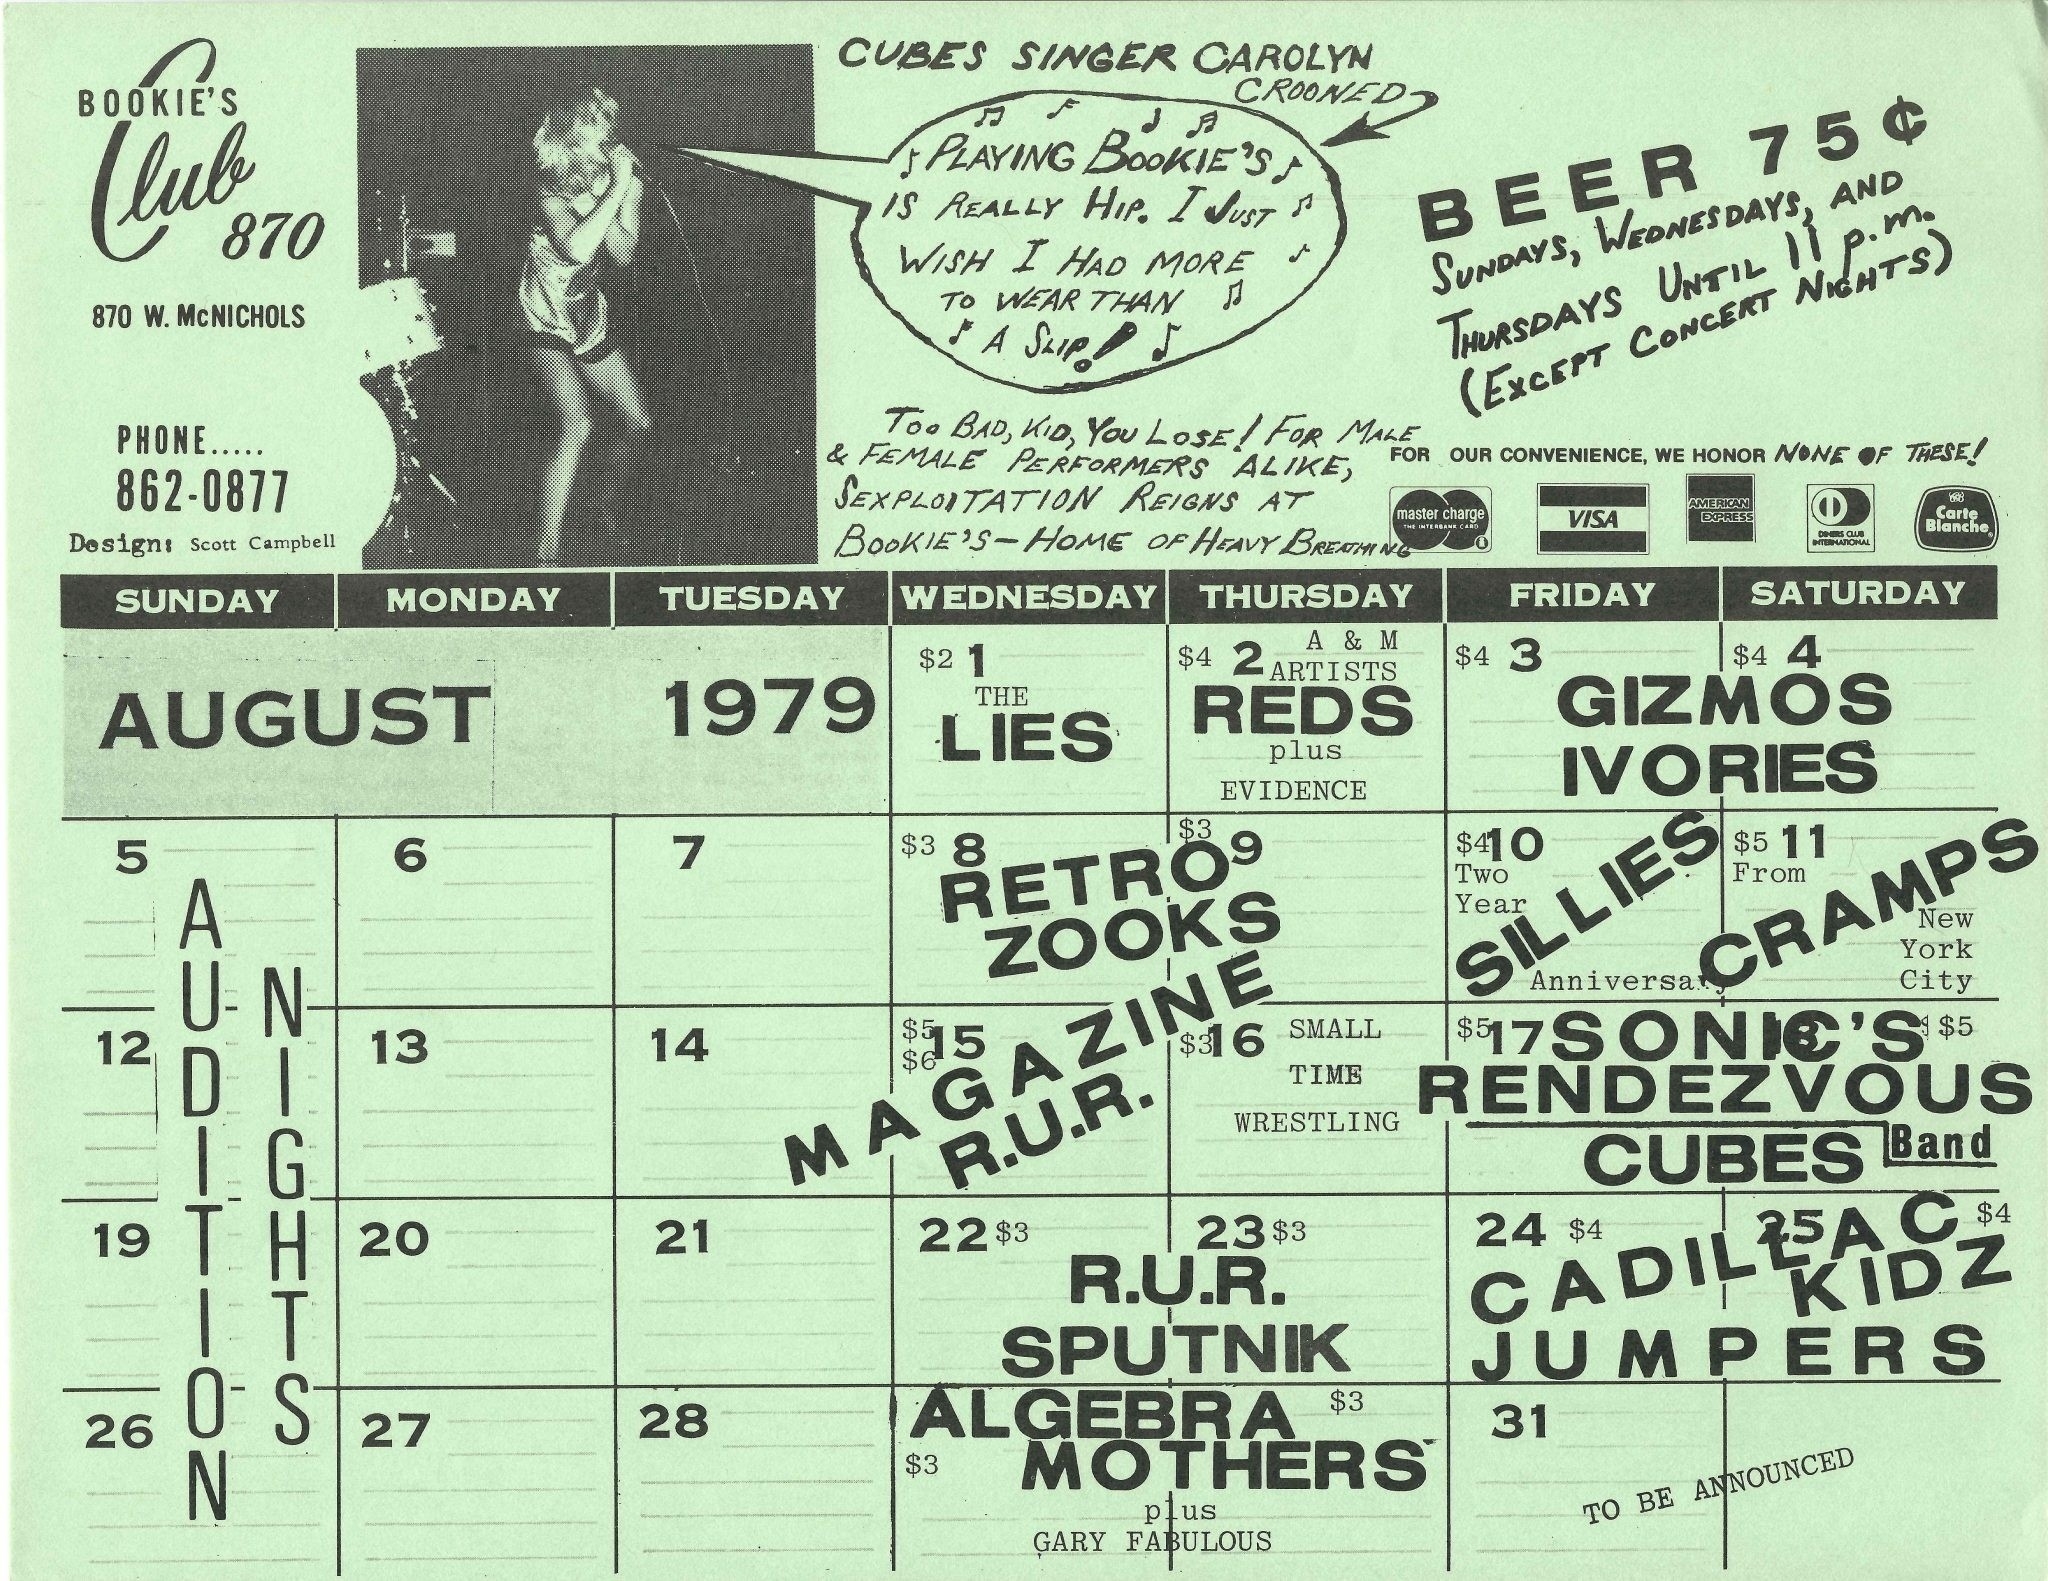 BOOKIE'S
Club
870
870 W. McNICHOLS
PHONE.....
862-0877
Design: Scott Campbell
CUBES SINGER CAROLYN
CROONED
PLAYING BOOKIE'S
IS REALLY HIP. I JUST
WISH I HAD MORE
TO WEAR THAN
A SLIP!
TOO BAD, KID, YOU LOSE! FOR MALE
& FEMALE PERFORMERS ALIKE,
SEXPLOITATION REIGNS AT
BOOKIE'S—HOME OF HEAVY BREATHING
BEER 75¢
SUNDAYS, WEDNESDAYS, AND
THURSDAYS UNTIL 11 p.m.
(EXCEPT CONCERT NIGHTS)
FOR OUR CONVENIENCE, WE HONOR NONE OF THESE!
master charge
THE INTERBANK CARD
VISA
AMERICAN
EXPRESS
DINERS CLUB
INTERNATIONAL
Carte
Blanche
SUNDAY MONDAY TUESDAY WEDNESDAY THURSDAY FRIDAY SATURDAY
AUGUST 1979
$2 1
THE
LIES
$4 2 A & M
ARTISTS
REDS
plus
EVIDENCE
$4 3 $4 4
GIZMOS
IVORIES
5 6 7
AUDITION
NIGHTS
$3 8 $3 9
RETRO
ZOOKS
$4 10
Two
Year
SILLIES
Anniversary
$5 11
From
CRAMPS
New
York
City
12 13 14
$5 15
$6
MAGAZINE
R.U.R.
$3 16 SMALL
TIME
WRESTLING
$5 17 18 $5
SONIC'S
RENDEZVOUS
Band
CUBES
19 20 21
22 $3 23 $3
R.U.R.
SPUTNIK
24 $4 25 $4
CADILLAC
KIDZ
JUMPERS
26 27 28
ALGEBRA $3
$3 MOTHERS
plus
GARY FABULOUS
31
TO BE ANNOUNCED